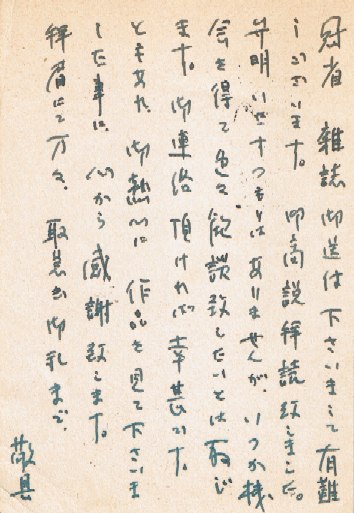 冠省 雑誌御送付下さいまして有難
うございます。御高説拝読致しました。
弁明いたすつもりはありませんが、いつか機
会を得て色々御談致したいとは存じ
ます。御連絡頂ければ幸甚です。
ともあれ、御熱心に作品を見て下さいま
した事に、心から感謝致します。
拝眉にて万々、取急ぎ御礼まで。
敬具